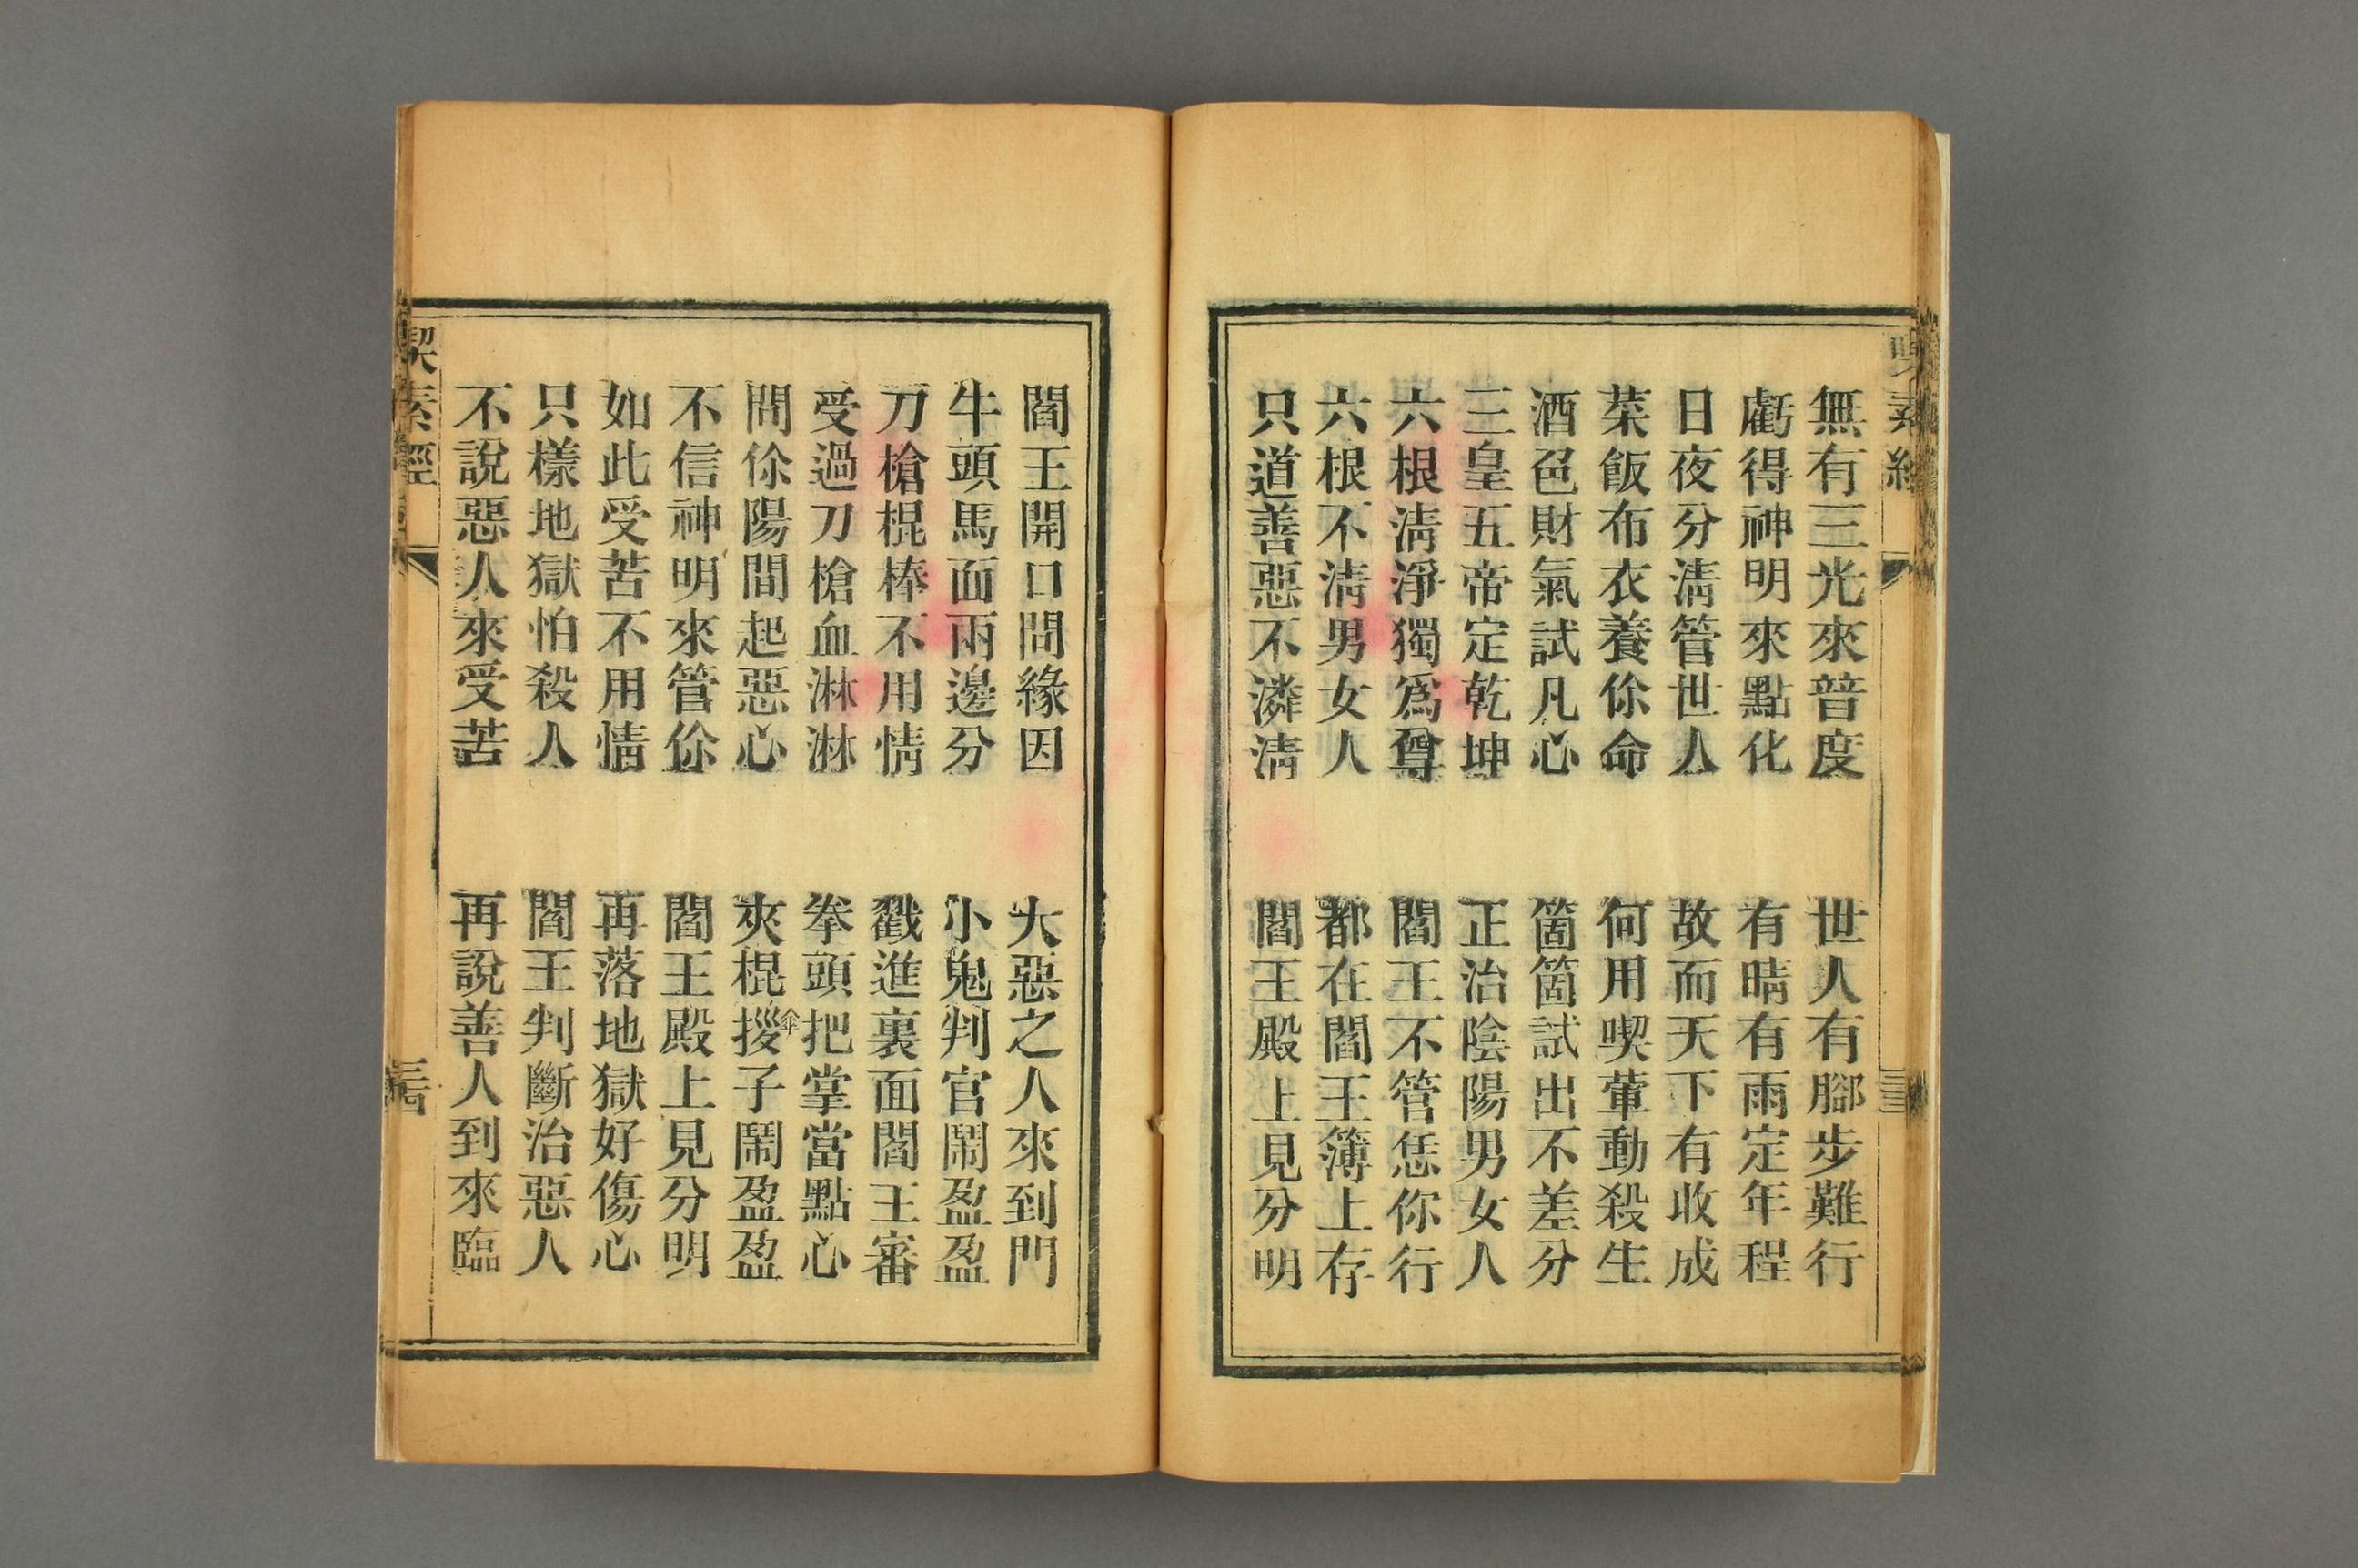 無有三光來普度　世人有腳步難行
虧得神明來點化　有晴有雨定年程
日夜分淸管世人　故而天下有收成
菜飯布衣養你命　何用喫葷動殺生
酒色財氣試凡心　箇箇試出不差分
三皇五帝定乾坤　正治陰陽男女人
六根淸淨獨爲尊　閻王不管恁你行
六根不淸男女人　都在閻王簿上存
只道善惡不潾淸　閻王殿上見分明
閻王開口問緣因　大惡之人來到門
牛頭馬面兩邊分　小鬼判官鬧盈盈
刀槍棍棒不用情　戳進裏面閻王審
受過刀槍血淋淋　拳頭把掌當點心
問你陽間起惡心　夾棍拶子鬧盈盈
不信神明來管你　閻王殿上見分明
如此受苦不用情　再落地獄好傷心
只樣地獄怕殺人　閻王判斷治惡人
不說惡人來受苦　再說善人到來臨
喫素經
三古